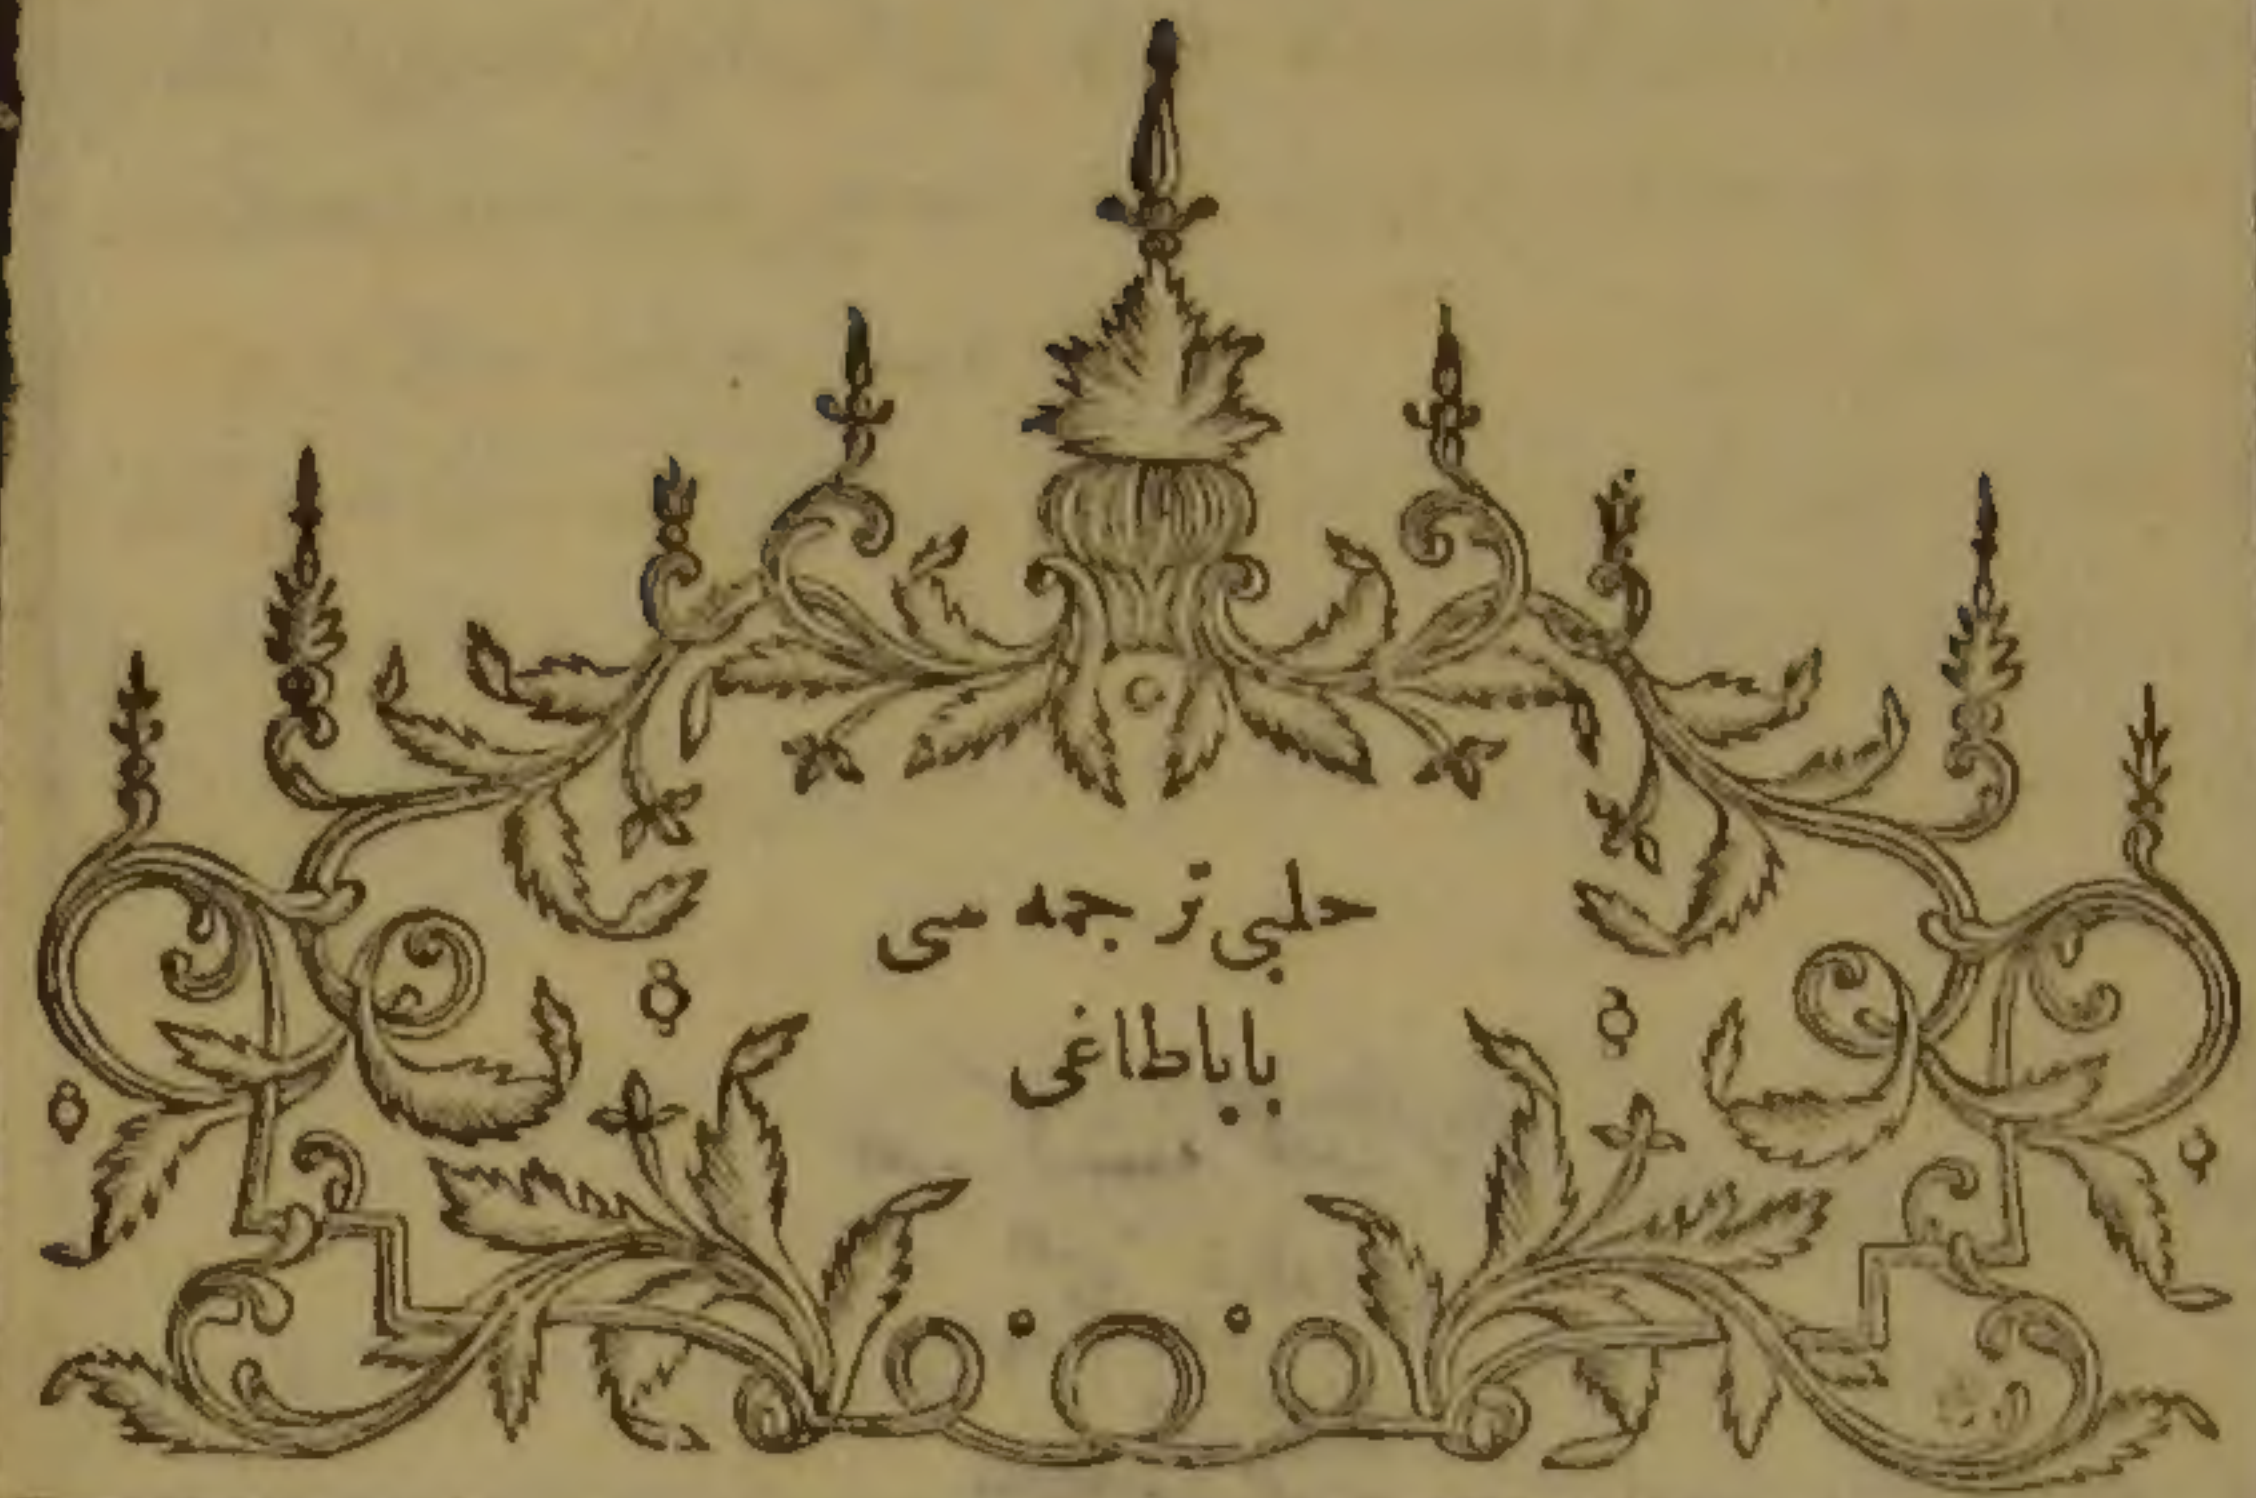 حلبی ترجمه سی
باباطاغی